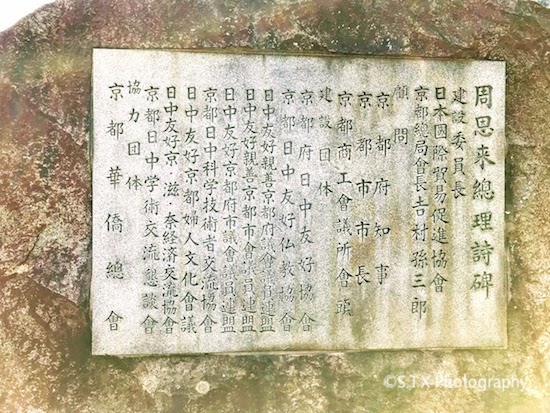 周恩来總理詩碑
建設委員長
日本國際貿易促進協會
京都總局會長吉村孫三郎
顧問
京都府知事
京都市市長
京都商工會議所會頭
建設団体
京都府日中友好協會
京都日中友好仏教協會
日中友好親善京都府議會議員連盟
日中友好親善京都市會議員連盟
日中友好京都府市議會議員連盟
京都日中科学技術者交流協會
日中友好京都婦人文化會議
日中友好京・滋・奈経済交流協會
京都日中学術交流懇談會
協力団体
京都華僑總會
©S.T.X-Photography